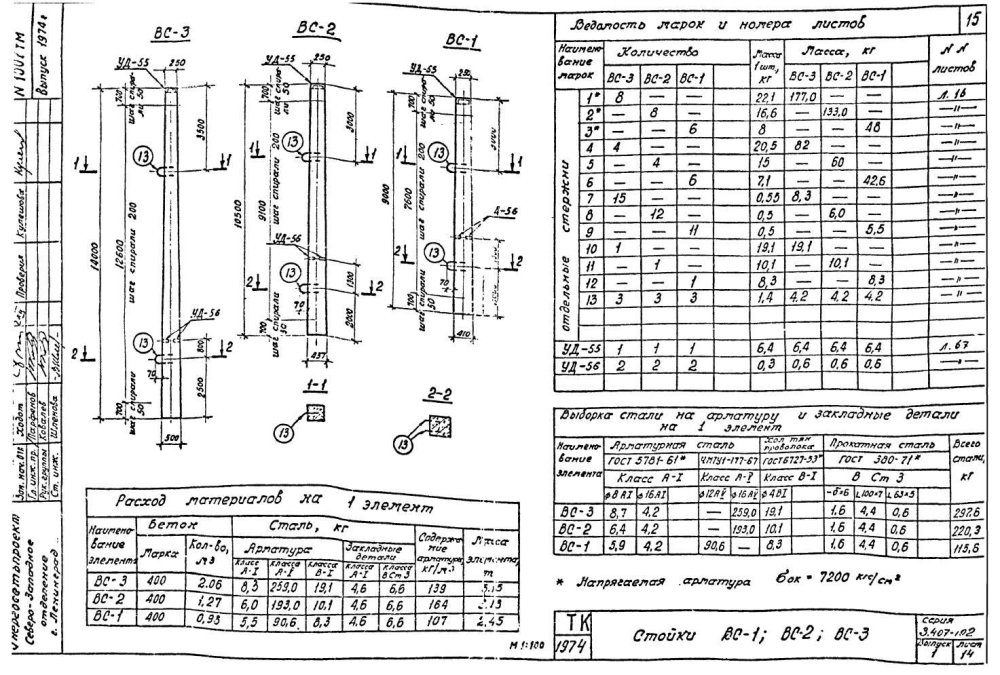 15
N 1001 ТМ
Выпуск 1974г
ВС-3
УД-55
250
700
50
шаг спирали
3500
13
1
1
14000
12600
шаг спирали 200
УД-56
13
2
2
800
70
2500
700
50
шаг спирали
500
ВС-2
250
УД-55
700
50
шаг спирали
3000
13
1
1
10500
9100
шаг спирали 200
УД-56
13
2
2
1300
70
2000
700
50
шаг спирали
437
ВС-1
УД-55
700
50
шаг спирали
13
1
1
9000
7600
шаг спирали 200
13
2
2
70
700
50
шаг спирали
410
1-1
13
2-2
13
Ведомость марок и номера листов
Наименование марок Количество Масса 1 шт, кг Масса, кг N N листов
ВС-3 ВС-2 ВС-1 ВС-3 ВС-2 ВС-1
отдельные стержни
1* 8 — — 22,1 177,0 — — л. 16
2* — 8 — 16,6 — 133,0 — —"—
3* — — 6 8 — — 48 —"—
4 4 — — 20,5 82 — — —"—
5 — 4 — 15 — 60 — —"—
6 — — 6 7,1 — — 42,6 —"—
7 15 — — 0,55 8,3 — — —"—
8 — 12 — 0,5 — 6,0 — —"—
9 — — 11 0,5 — — 5,5 —"—
10 1 — — 19,1 19,1 — — —"—
11 — 1 — 10,1 — 10,1 — —"—
12 — — 1 8,3 — — 8,3 —"—
13 3 3 3 1,4 4,2 4,2 4,2 —"—
УД-55 1 1 1 6,4 6,4 6,4 6,4 л. 67
УД-56 2 2 2 0,3 0,6 0,6 0,6 —"—
Выборка стали на арматуру и закладные детали
на 1 элемент
Наименование элемента Арматурная сталь Хол тян проволока Прокатная сталь Всего стали, кг
ГОСТ 5781-61* ЧМТУ1-177-67 ГОСТ6727-53* ГОСТ 380-71*
Класс А-I Класс А-V Класс В-I В Ст 3
ф8АI ф16АI ф12АV ф16АV ф4ВI -δ=6 L100×7 L63×5
ВС-3 8,7 4,2 — 259,0 19,1 1,6 4,4 0,6 297,6
ВС-2 6,4 4,2 — 193,0 10,1 1,6 4,4 0,6 220,3
ВС-1 5,9 4,2 90,6 — 8,3 1,6 4,4 0,6 115,6
* Напрягаемая арматура бок = 7200 кгс/см²
Расход материалов на 1 элемент
Наименование элемента Бетон Сталь, кг Содержание арматуры, кг/м3 Масса элемента, т
Марка Кол-во, м3 Арматура Закладные детали
класс А-I класса А-V класса В-I класса А-I класса ВСт3
ВС-3 400 2.06 8,3 259,0 19,1 4,6 6,6 139 5.15
ВС-2 400 1,27 6,0 193,0 10,1 4,6 6,6 164
ВС-1 400 0,93 5,5 90,6 8,3 4,6 6,6 107 2,45
М 1:100
ТК
1974
Стойки ВС-1; ВС-2; ВС-3
серия
3.407-102
Выпуск 1
Лист 14
Энергосетьпроект
Северо-Западное
отделение
г. Ленинград
Зам. нач. отд. Ходот
Гл. инж. пр. Парфенов
Рук. группы Ковалев
Ст. инж. Шленова
Проверил Кулешова